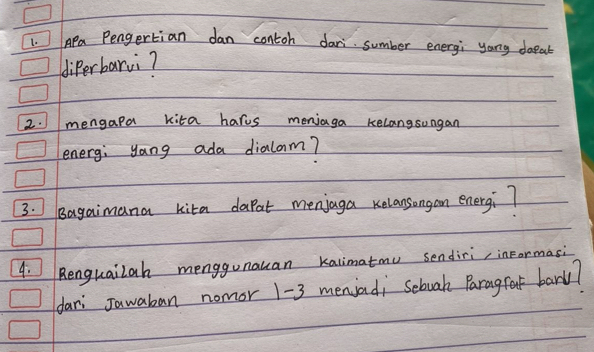 1. Apa Pengertian dan contoh dari sumber energi yang dapat
diperbarui?
2. mengapa kita harus menjaga kelangsungan
energi yang ada dialam?
3. Bagaimana kita dapat menjaga kelansongan energi?
4. Rengkailah menggunakan kalimatmu sendiri, informasi
dari Jawaban nomor 1-3 menjadi sebuah Paragraf baru?